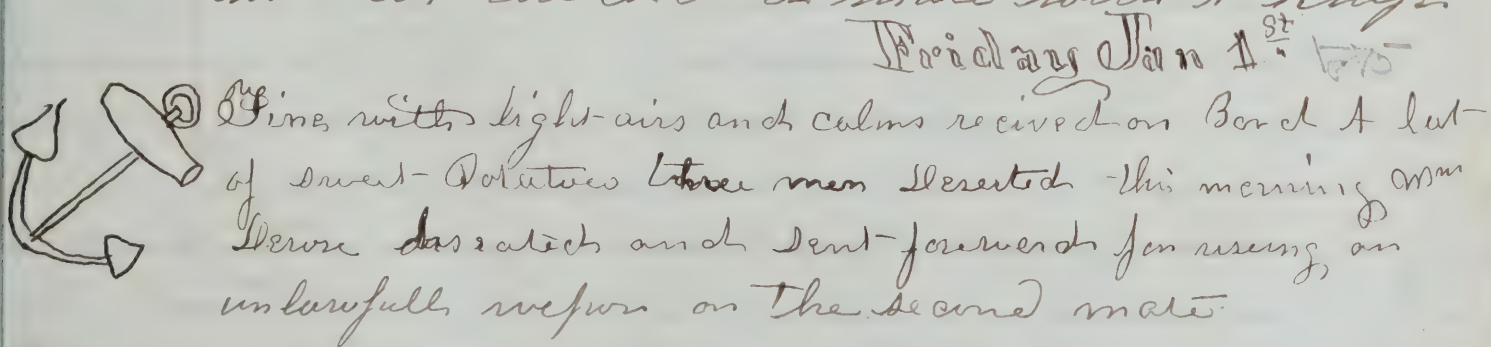 Friday Jan 1st
Fine with light airs and calms recived on Bord A lot
of sweet Potatoes three men Deserted this morning Wm
and sent foreward for useing an
unlawfull wepon on the second mate